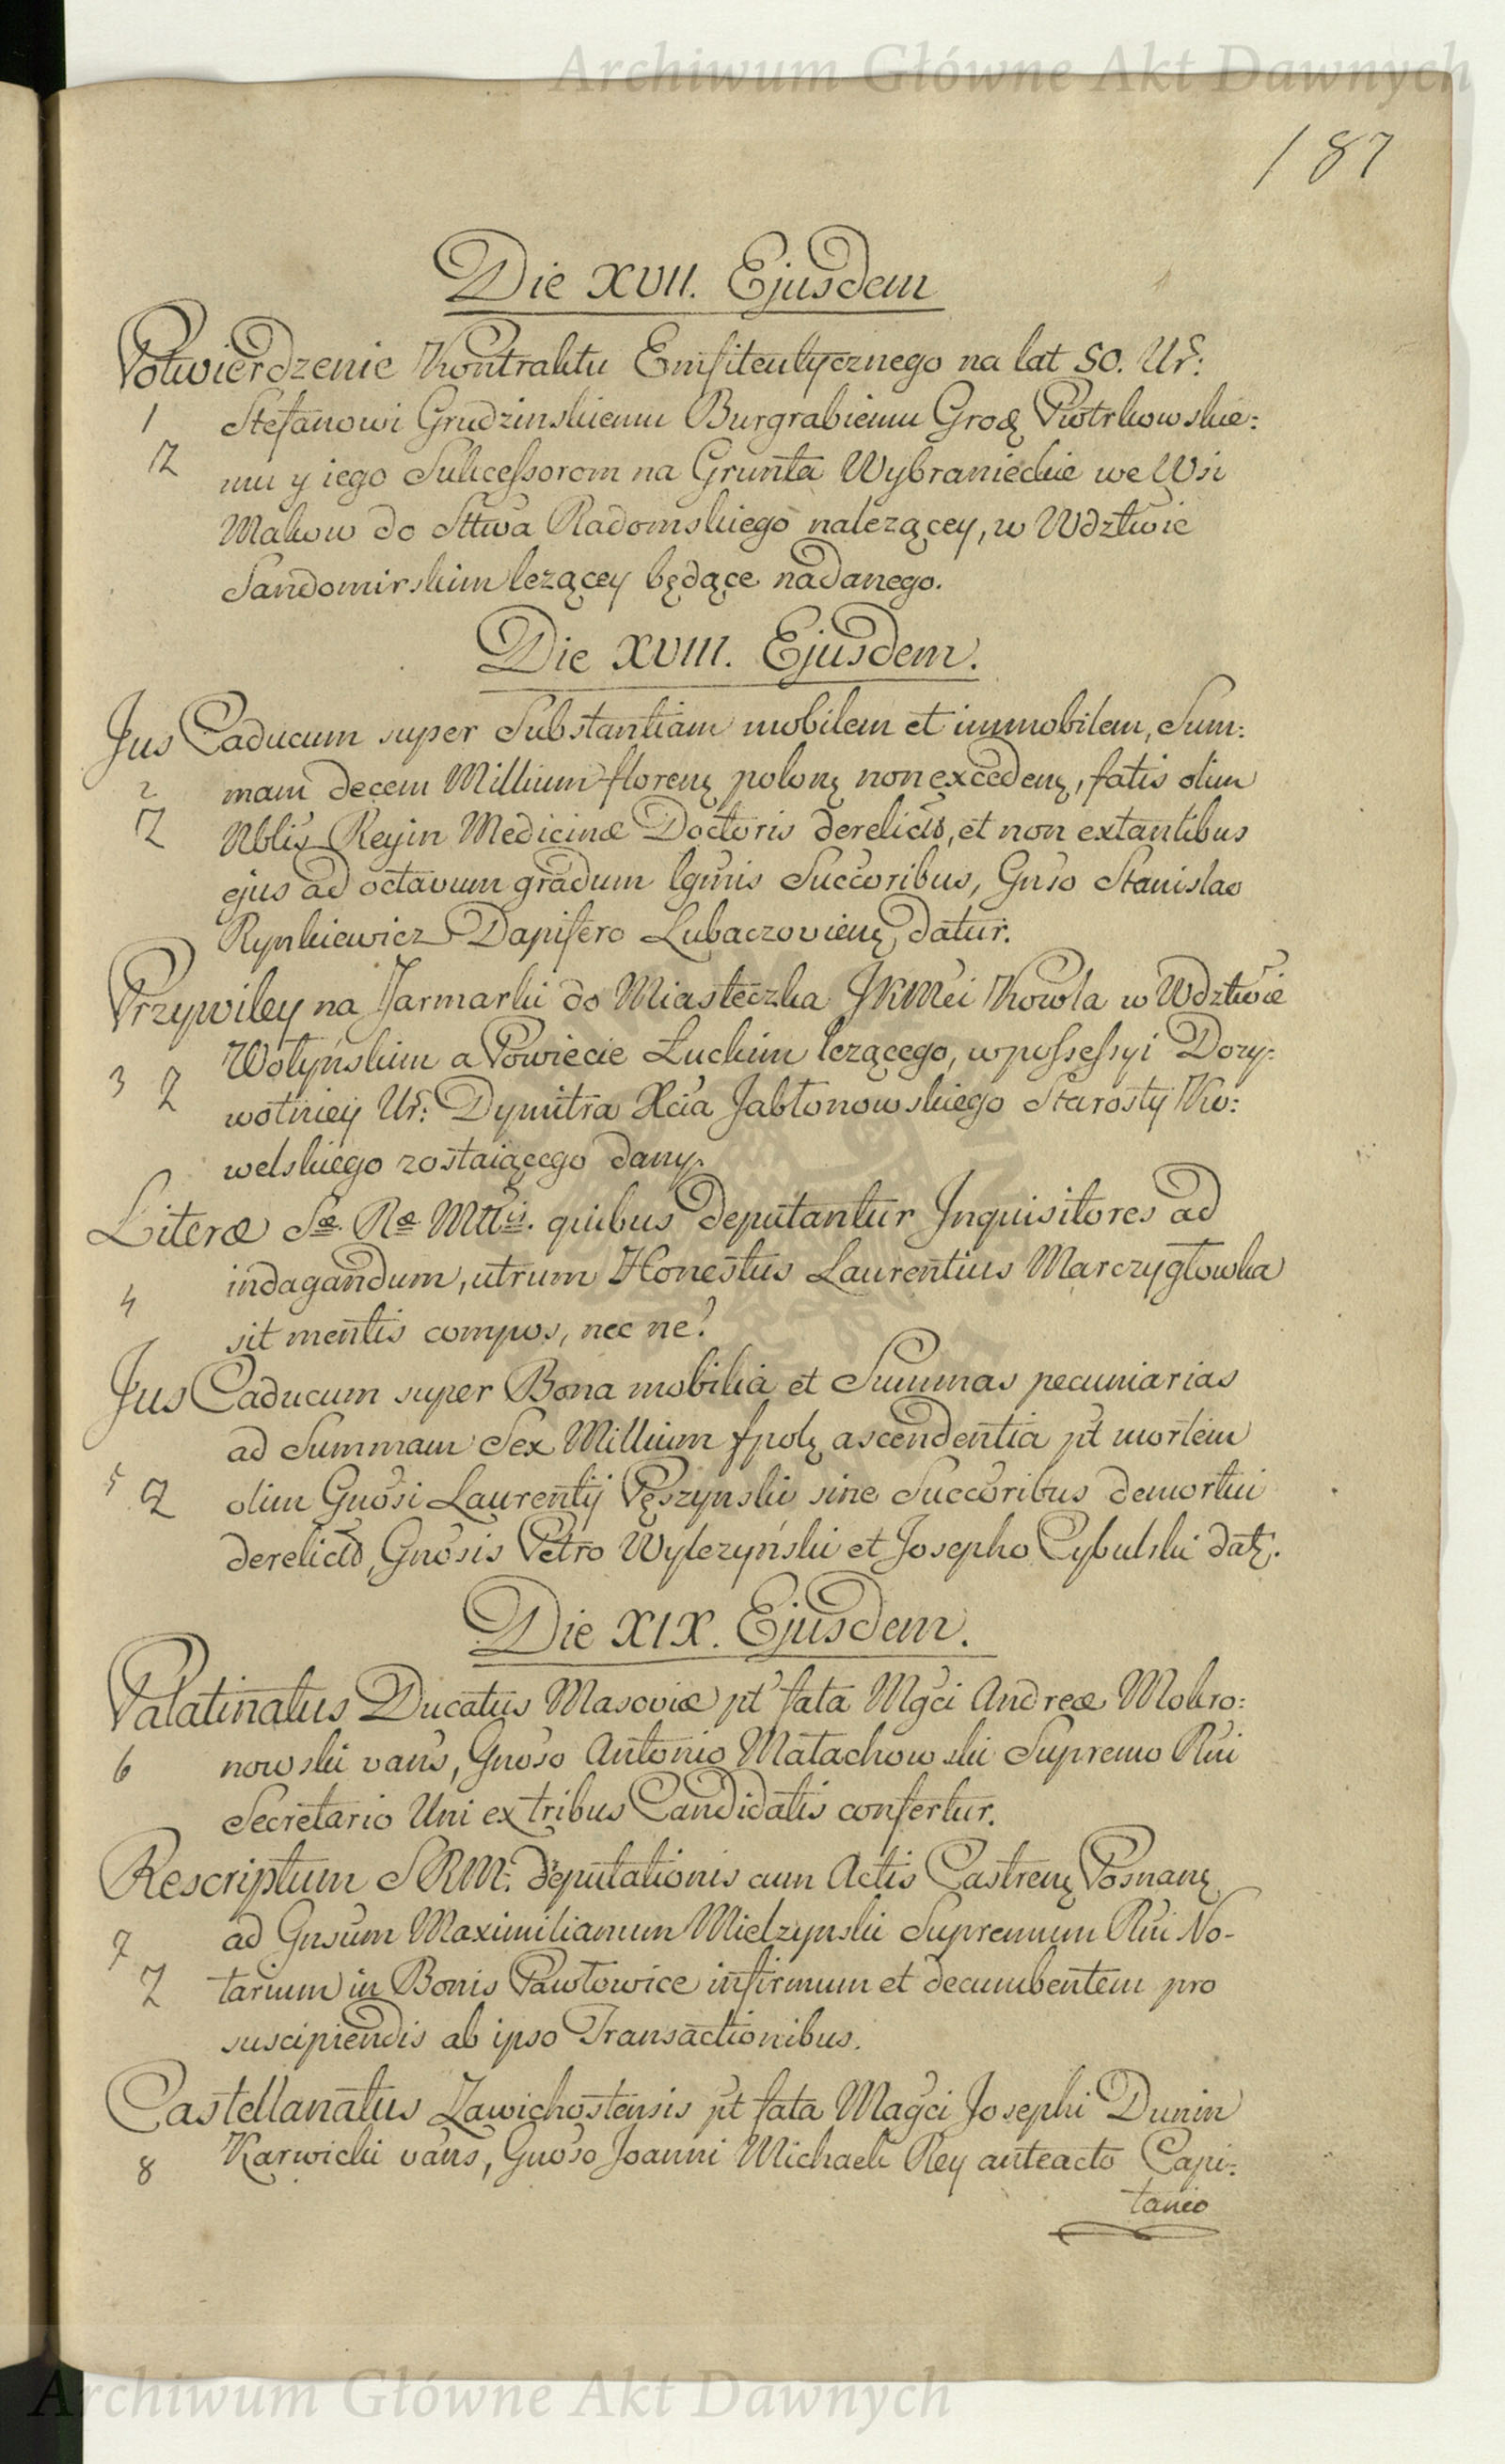 Archiwum Główne Akt Dawnych
187
Die XVII. Ejusdem
Potwierdzenie Kontraktu Emfiteutycznego na lat 50. Ur:
1 Stefanowi Grudzinskiemu Burgrabiemu Grodʒ Piotrkowskie:
Z mu y iego Sukcessorom na Grunta Wybranieckie we Wsi
Makow do Sttwa Radomskiego nalezącey, w Wdztwie
Sandomirskim lezącey będące nadanego.
Die XVIII. Ejusdem.
Jus Caducum super Substantiam mobilem et immobilem, Sum:
2 mam decem Millium florenʒ polonʒ non excedenʒ, fatis olim
Z Nblis Reyin Medicinæ Doctoris derelictā, et non extantibus
ejus ad octavum gradum lgmis Succoribus, Gnso Stanislao
Rynkiewicz Dapifero Lubaczovienʒ datur.
Przywiley na Jarmarki do Miasteczka JKMci Kowla w Wdztwie
3 Z Wołyńskim a Powiecie Łuckim lezącego, w possessyi Dozy:
wotniey Ur: Dymitra Xcia Jabłonowskiego Starosty Ko:
welskiego zostaiącego dany.
Literæ Sæ. Ræ. Mttis. quibus deputantur Inquisitores ad
4 indagandum, utrum Honestus Laurentius Marczygłowka
sit mentis compos, nec ne?
Jus Caducum super Bona mobilia et Summas pecuniarias
ad Summam Sex Millium fpolʒ ascendentia pt mortem
5 Z olim Gnosi Laurentij Pęszynski sine Succoribus demortui
derelictā, Gnosis Petro Wylezyński et Josepho Cybulski datʒ.
Die XIX. Ejusdem.
Palatinatus Ducatus Masoviæ pt fata Mgci Andreæ Mokro:
6 nowski vans, Gnoso Antonio Małachowski Supremo Rni
Secretario Uni ex tribus Candidatis confertur.
Rescriptum SRM. deputationis cum Actis Castrenʒ Posnanʒ
7 ad Gnsum Maximilianum Mielzynski Supremum Rni No-
Z tarium in Bonis Pawłowice infirmum et decumbentem pro
suscipiendis ab ipso Transactionibus.
Castellanatus Zawichostensis pt fata Magci Josephi Dunin
8 Karwicki vans, Gnoso Joanni Michaeli Rey anteacto Capi:
taneo
Archiwum Główne Akt Dawnych